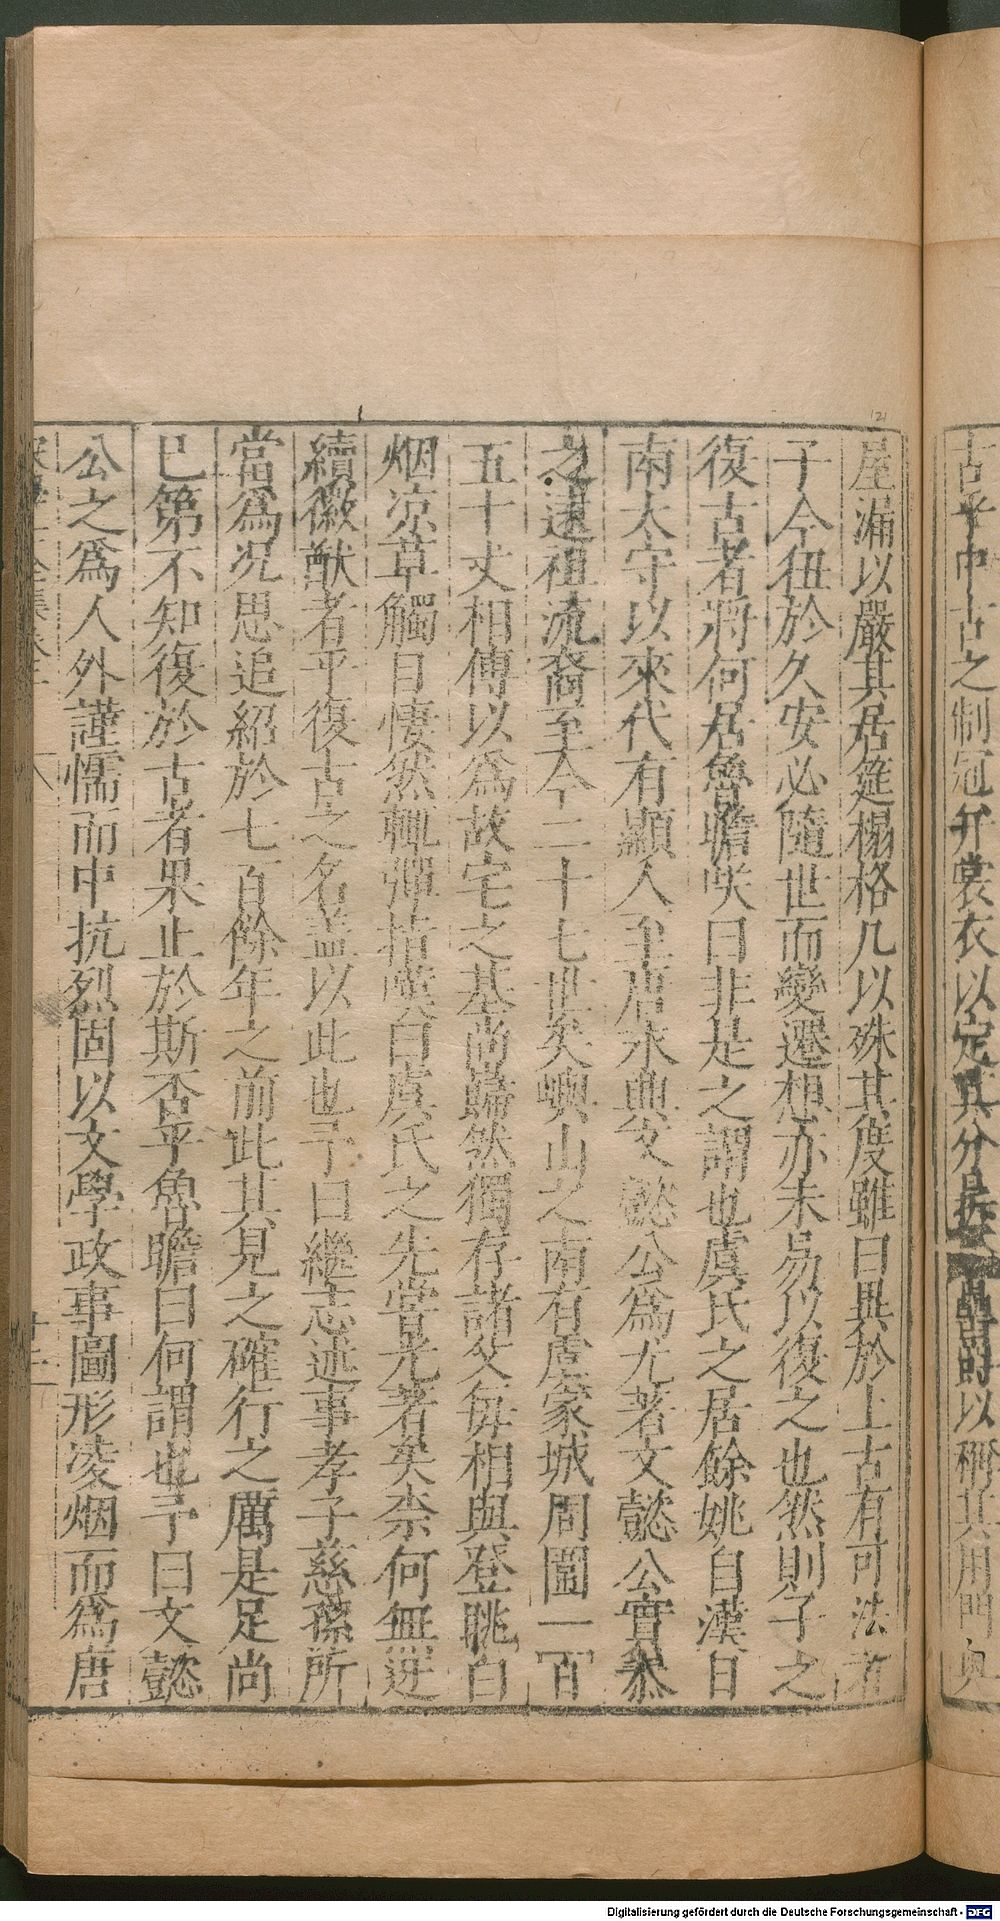 古乎中古之制冠弁裳衣以定其分 以稱其用門奥
屋漏以嚴其居筵榻格几以殊其度雖曰異於上古有可法者
子今狃於久安必隨世而變遷想亦未易以復之也然則子之
復古者將何居魯瞻咲曰非是之謂也虞氏之居餘姚自漢日
南太守以來代有顯人至唐永興文懿公爲尤著文懿公實恭
之遠祖流裔至今二十七世矣嶼山之南有虞家城周圍一百
五十丈相傳以爲故宅之基尚巋然獨存諸父每相與登眺白
烟凉草觸目悽然輒彈指嘆曰虞氏之先嘗光著矣柰何無迓
續徽猷者乎復古之名盖以此也予曰繼志述事孝子慈孫所
當爲况思追紹於七百餘年之前此其見之確行之厲是足尚
已第不知復於古者果止於斯否乎魯瞻曰何謂也予曰文懿
公之爲人外謹懦而中抗烈固以文學政事圖形凌烟而爲唐
Digitalisierung gefördert durch die Deutsche Forschungsgemeinschaft - DFG